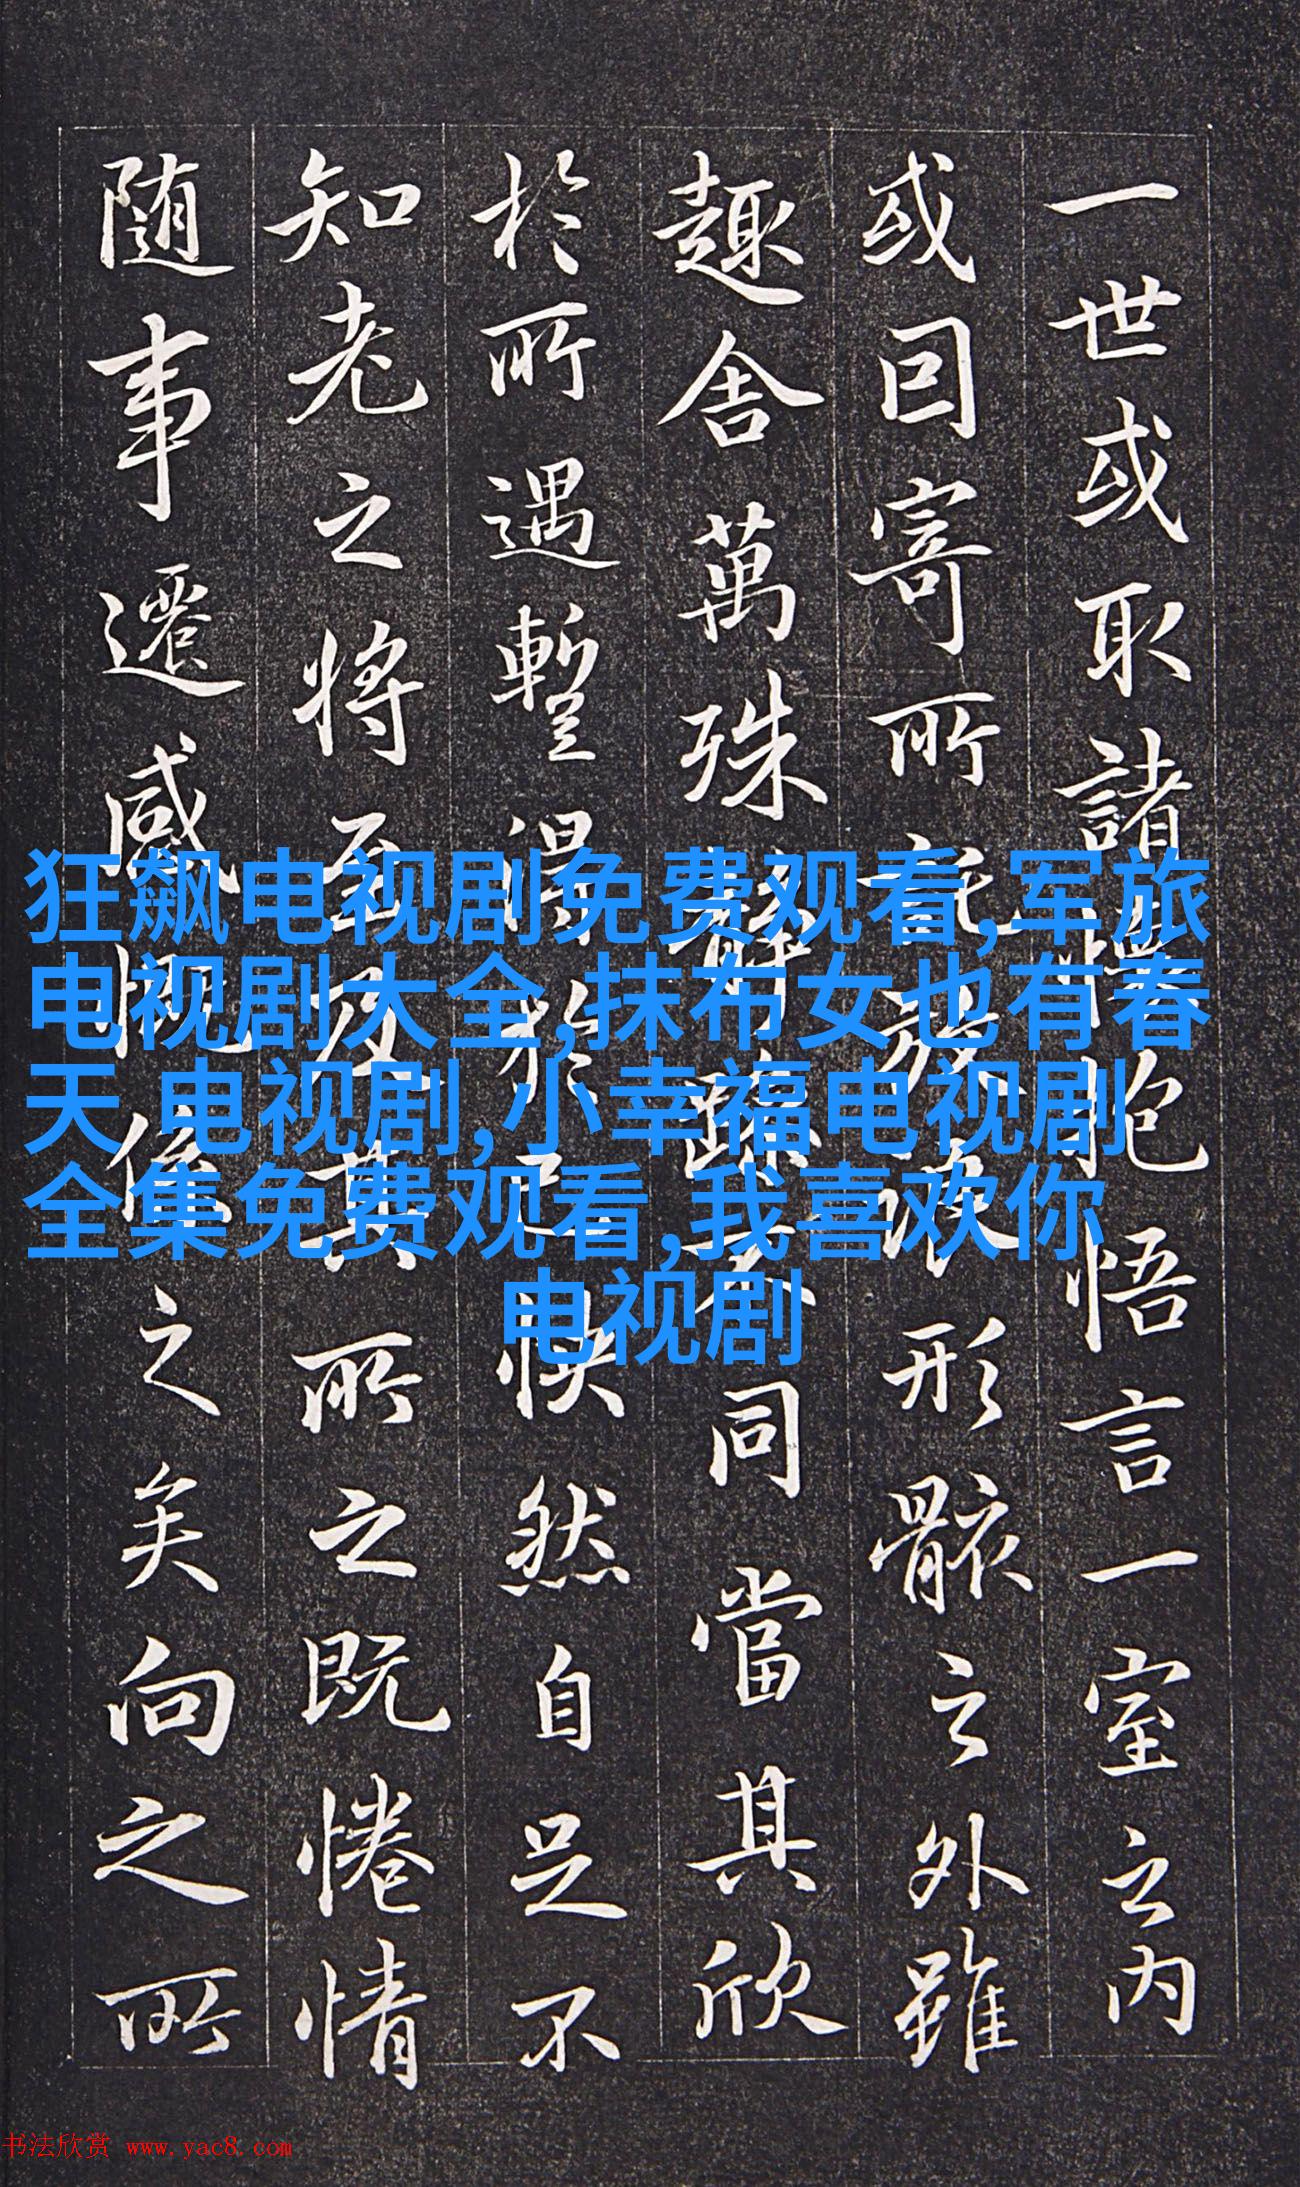 一世或取諸懷抱悟言一室之内
或囙寄所託放浪形骸之外雖
趣舍萬殊靜躁不同當其欣
於所遇暫得於己快然自足不
知老之將至及其所之既惓情
随事遷感慨係之矣向之所
狂飙电视剧免费观看,军旅
电视剧大全,抹布女也有春
天 电视剧,小幸福电视剧
全集免费观看,我喜欢你
电视剧
书法欣赏 www.yac8.com